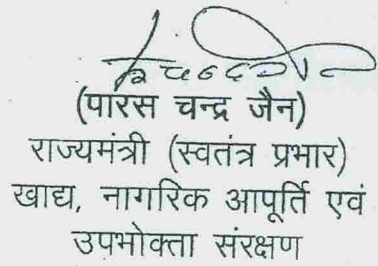 (पारस चन्द्र जैन)
राज्यमंत्री (स्वतंत्र प्रभार)
खाद्य, नागरिक आपूर्ति एवं
उपभोक्ता संरक्षण